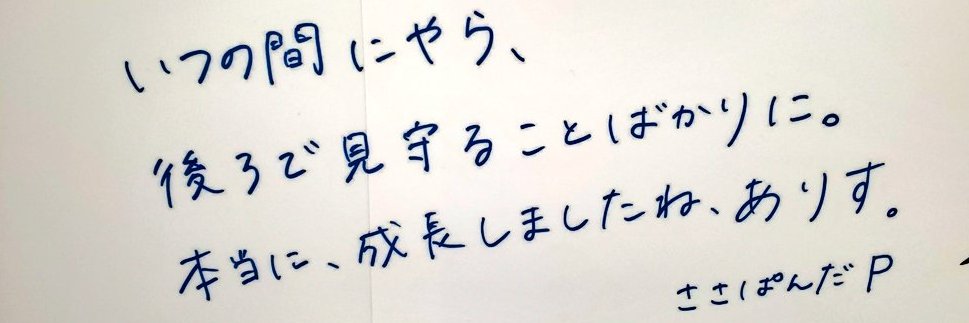 いつの間にやら、
後ろで見守ることばかりに。
本当に、成長しましたね、ありす。
ささぱんだP